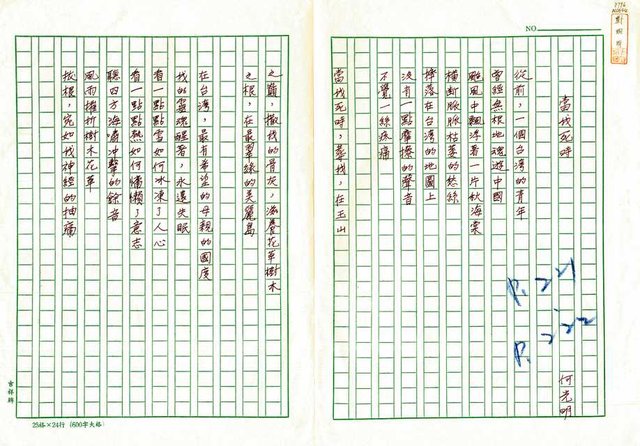 NO
當我死時
何光明
P.221
P.222
從前，一個台湾的青年
曾經無根地魂遊中國
颱風中飄浮著一片秋海棠
橫斷脈脈枯萎的愁絲
摔落在台湾的地圖上
沒有一點摩擦的聲音
不覺一絲疼痛
當我死時，葬我，在玉山
之巔，撒我的骨灰，滋養花草樹木
之根，在最翠綠的美麗島
在台湾，最有希望的母親的國度
我的靈魂醒著，永遠失眠
有一點點雪如何冰凍了人心
有一點點熱如何慵懶了意志
聽四方海嘯冲擊的餘音
風雨摧折樹木花草
拔根，宛如我神經的抽痛
吉祥牌
25格×24行（600字大格）